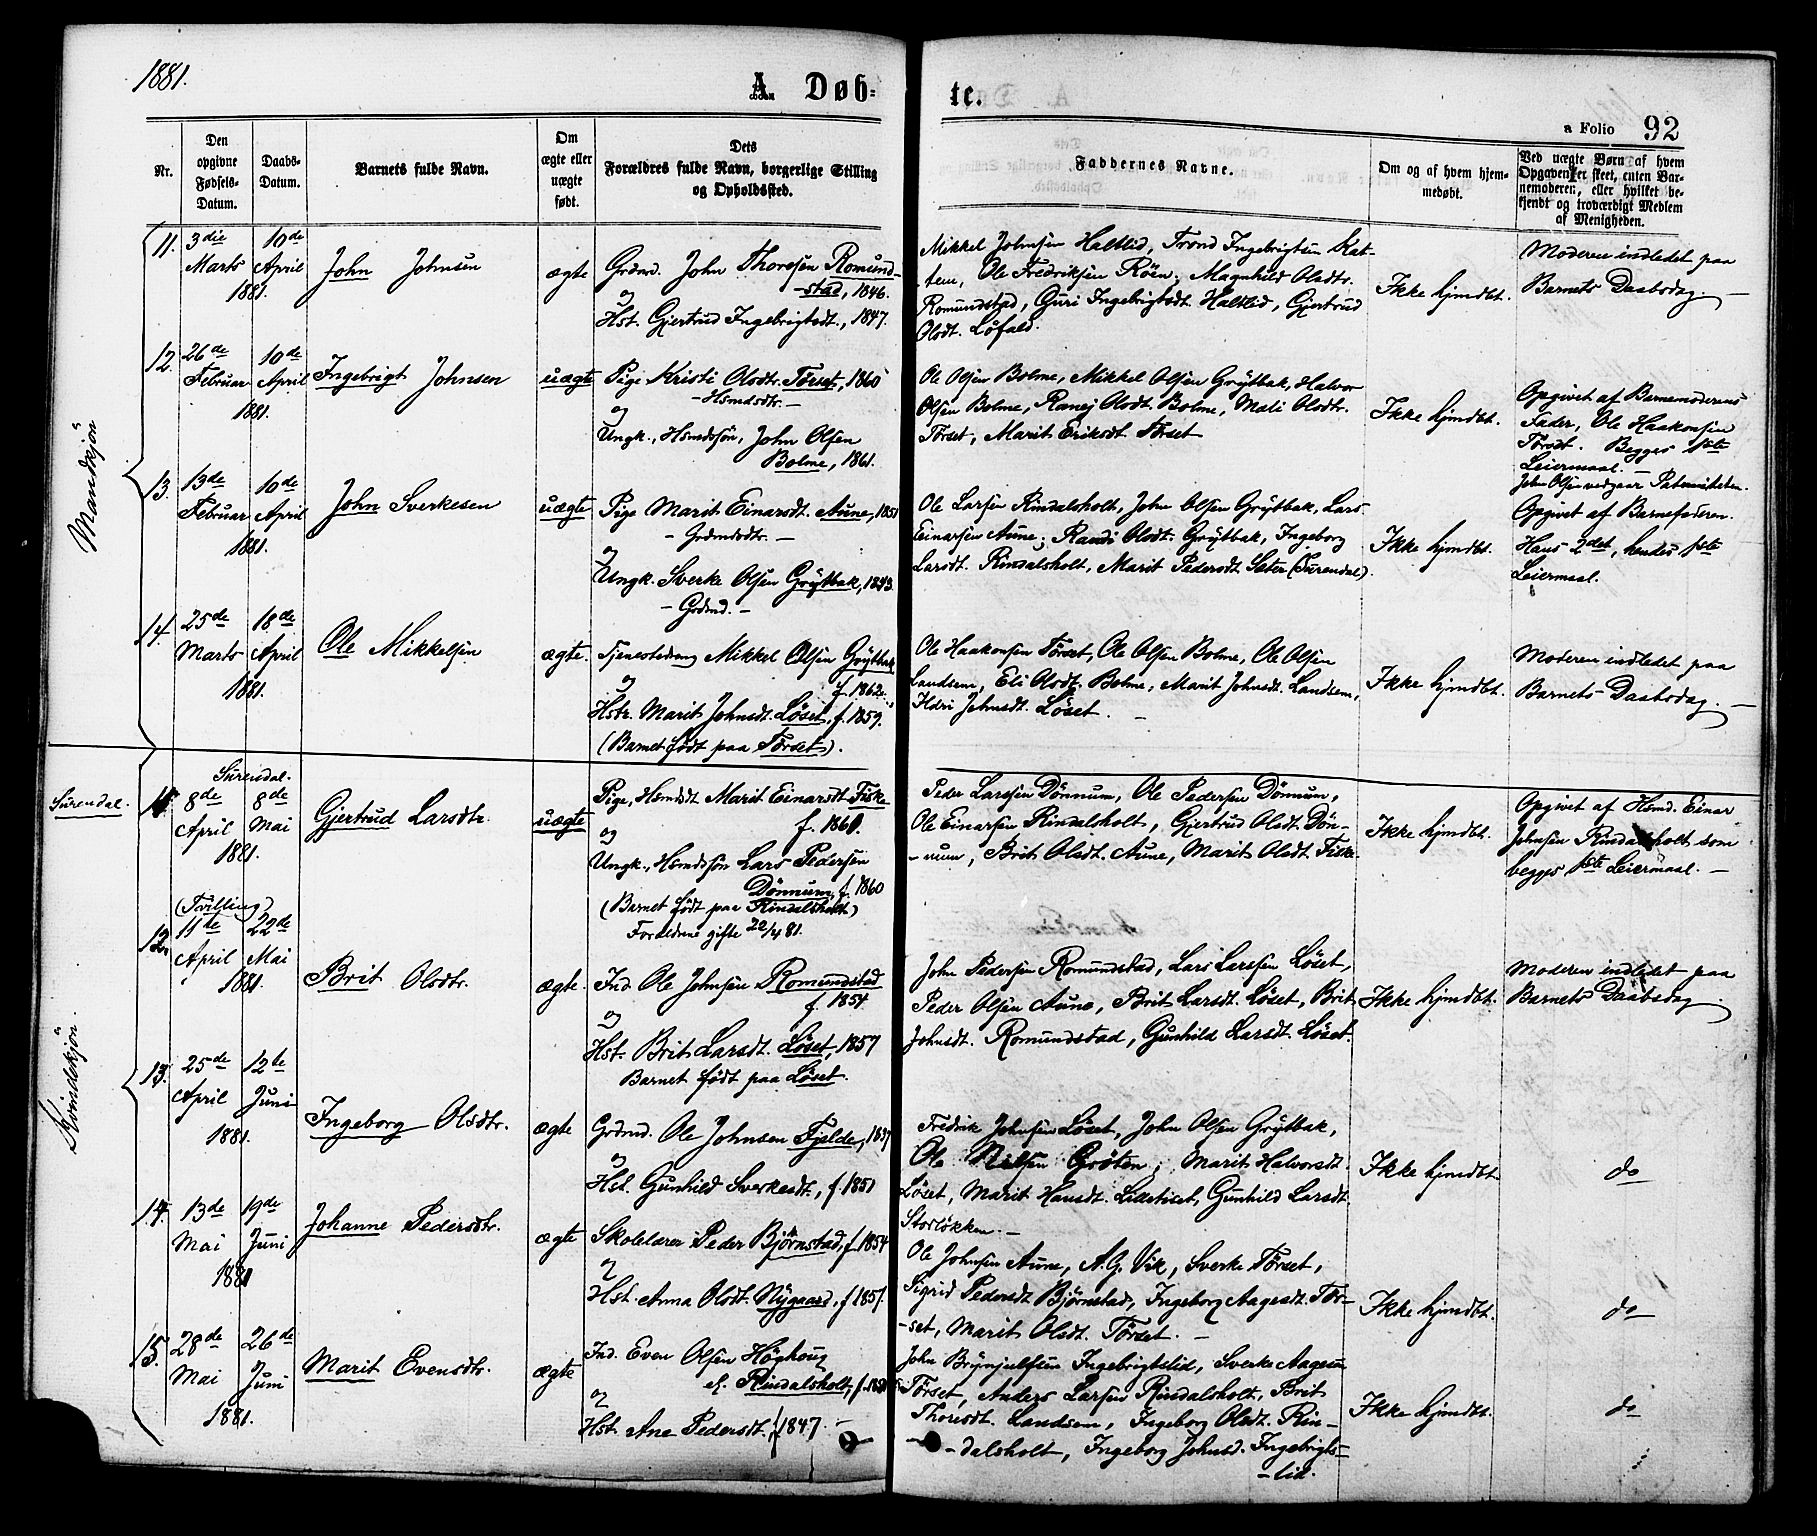 1881.
A. Døb-
te.
a Folio 92
Nr.
Den opgivne Fødsels-Datum.
Daabs-Datum.
Barnets fulde Navn.
Om ægte eller uægte født.
Dets Forældres fulde Navn, borgerlige Stilling og Opholdssted.
Faddernes Navne.
Om og af hvem hjem-
medøbt.
Ved uægte Børn af hvem
Opgaven er skeet, enten Bar-
nemoderen, eller hvilket be-
kjendt og troværdigt Medlem
af Menigheden.
Mandkjön
11.
3die Marts 1881.
10de April
John Johnsen
ægte
Grdmd. John Thoresen Romund-
-stad, 1846.
og
Hst. Gjertrud Ingebrigtsdt., 1847.
Mikkel Johnsen Haltlid, Trond Ingebrigtsen Kat-
tem, Ole Fredriksen Röen, Magnhild Olsdtr.
Romundstad, Guri Ingebrigtsdt. Haltlid, Gjertrud
Olsdt. Löfald.
Ikke hjmdbt.
Moderen indledet paa
Barnets Daabsdag. —
12.
26de Februar 1881.
10de April
Ingebrigt Johnsen
uægte
Pige Kristi Olsdtr. Törset, 1860
- Hsmdsdtr. -
og
Ungk., Hsmdssön, John Olsen
Bolme, 1861.
Ole Olsen Bolme, Mikkel Olsen Gröttbak, Halvor
Olsen Bolme, Ranej Olsdt. Bolme, Mali Olsdtr.
Törset, Marit Eriksdt. Törset
Ikke hjmdbt.
Opgivet af Barnemoderens
Fader, Ole Haakonsen
Törset. Begges 1ste
Leiermaal. —
John Olsen vedgaar Paterniteten.
13.
13de Februar 1881.
10de April
John Sverkesen
uægte
Pige Marit Einarsdt. Aune, 1851
- Grdmdsdtr. -
og
Ungk. Sverke Olsen Gröttbak, 1843.
- Grdmd. -
Ole Larsen Rindalsholt, John Olsen Gröttbak, Lars
Einarsen Aune, Randi Olsdt. Gröttbak, Ingeborg
Larsdt. Rindalsholt, Marit Pedersdt. Sæter (Surendal).
Ikke hjmdbt.
Opgivet af Barnefaderen.
Hans 2det, hendes 1ste
Leiermaal.
14.
25de Marts 1881.
18de April
Ole Mikkelsen
ægte.
Tjenestedreng Mikkel Olsen Gröttbak
f. 1862.
og
Hstr. Marit Johnsdt. Löset, f. 1859.
(Barnet födt paa Törset).
Ole Haakonsen Törset, Ole Olsen Bolme, Ole Olsen
Landsem, Eli Olsdt. Bolme, Marit Johnsdt. Landsem,
Johnsdt. Löset. —
Ikke hjmdbt.
Moderen indledet paa
Barnets Daabsdag. —
Surendal.
Kvindekjön.
11.
Surendal.
8de April 1881.
8de Mai
Gjertrud Larsdtr.
uægte
Pige, Hsmdsdt. Marit Einarsdt. Fiske
f. 1860.
og
Ungk., Hsmdssön Lars Pedersen
Dönnum, f. 1860
(Barnet födt paa Rindalsholt)
Forældrene gifte 20/4 81.
Peder Larssen Dönnum, Ole Pedersen Dönnum,
Ole Einarsen Rindalsholt, Gjertrud Olsdt. Dön-
-num, Brit Olsdt. Aune, Marit Olsdt. Fiske.
Ikke hjmdbt.
Opgivet af Hsmd. Einar
Johnsen Rindalsholt som
begges 1ste Leiermaal. —
12.
(Tvilling)
11te April 1881.
22de Mai
Brit Olsdtr.
ægte.
Ind. Ole Johnsen Romundstad
f. 1854.
og
Hst. Brit Larsdt. Löset, 1857
Barnet födt paa Löset.
John Pedersen Romundstad, Lars Larssen Löset,
Peder Olsen Aune, Brit Larsdt. Löset, Brit
Johnsdt. Romundstad, Gunhild Larsdt. Löset.
Ikke hjmdbt.
Moderen indledet paa
Barnets Daabsdag.
13.
25de April 1881.
12te Juni
Ingeborg Olsdtr.
ægte
Grdmd. Ole Johnsen Fjelde, 1837
og
Hst. Gunhild Sverkesdt., f. 1851
Fredrik Johnsen Löset, John Olsen Gröttbak,
Ole Nilsen Gröten, Marit Halvorsdt.
Löset, Marit Hansdt. Lillesliset, Gunhild Larsdt.
Storlökken. —
Ikke hjmdbt
do
14.
13de Mai 1881
19de Juni
Johanne Pedersdtr.
ægte
Skolelærer Peder Bjørnstad, f. 1854
og
Hst. Anna Olsdt. Nygaard, f. 1851.
Ole Johnsen Aune, A.G. Vik, Sverke Törset,
Sigrid Pedersdt. Björnstad, Ingeborg Aagesdt. Tör-
-set, Marit Olsdt. Törset. —
Ikke hjmdbt.
do
15.
28de Mai 1881.
26de Juni
Marit Evensdtr.
ægte
Ind. Even Olsen Höghoug
el. Rindalsholt,
og
Hst. Ane Pedersdt., f. 1847. —
John Brynjulfsen Ingebrigtslid, Sverke Aagesen
Törset, Anders Larsen Rindalsholt, Brit
Thoresdt. Landsem, Ingeborg Olsdt. Rin-
-dalsholt, Ingeborg Johnsd. Ingebrigts-
-lid.
Ikke hjmdbt.
do